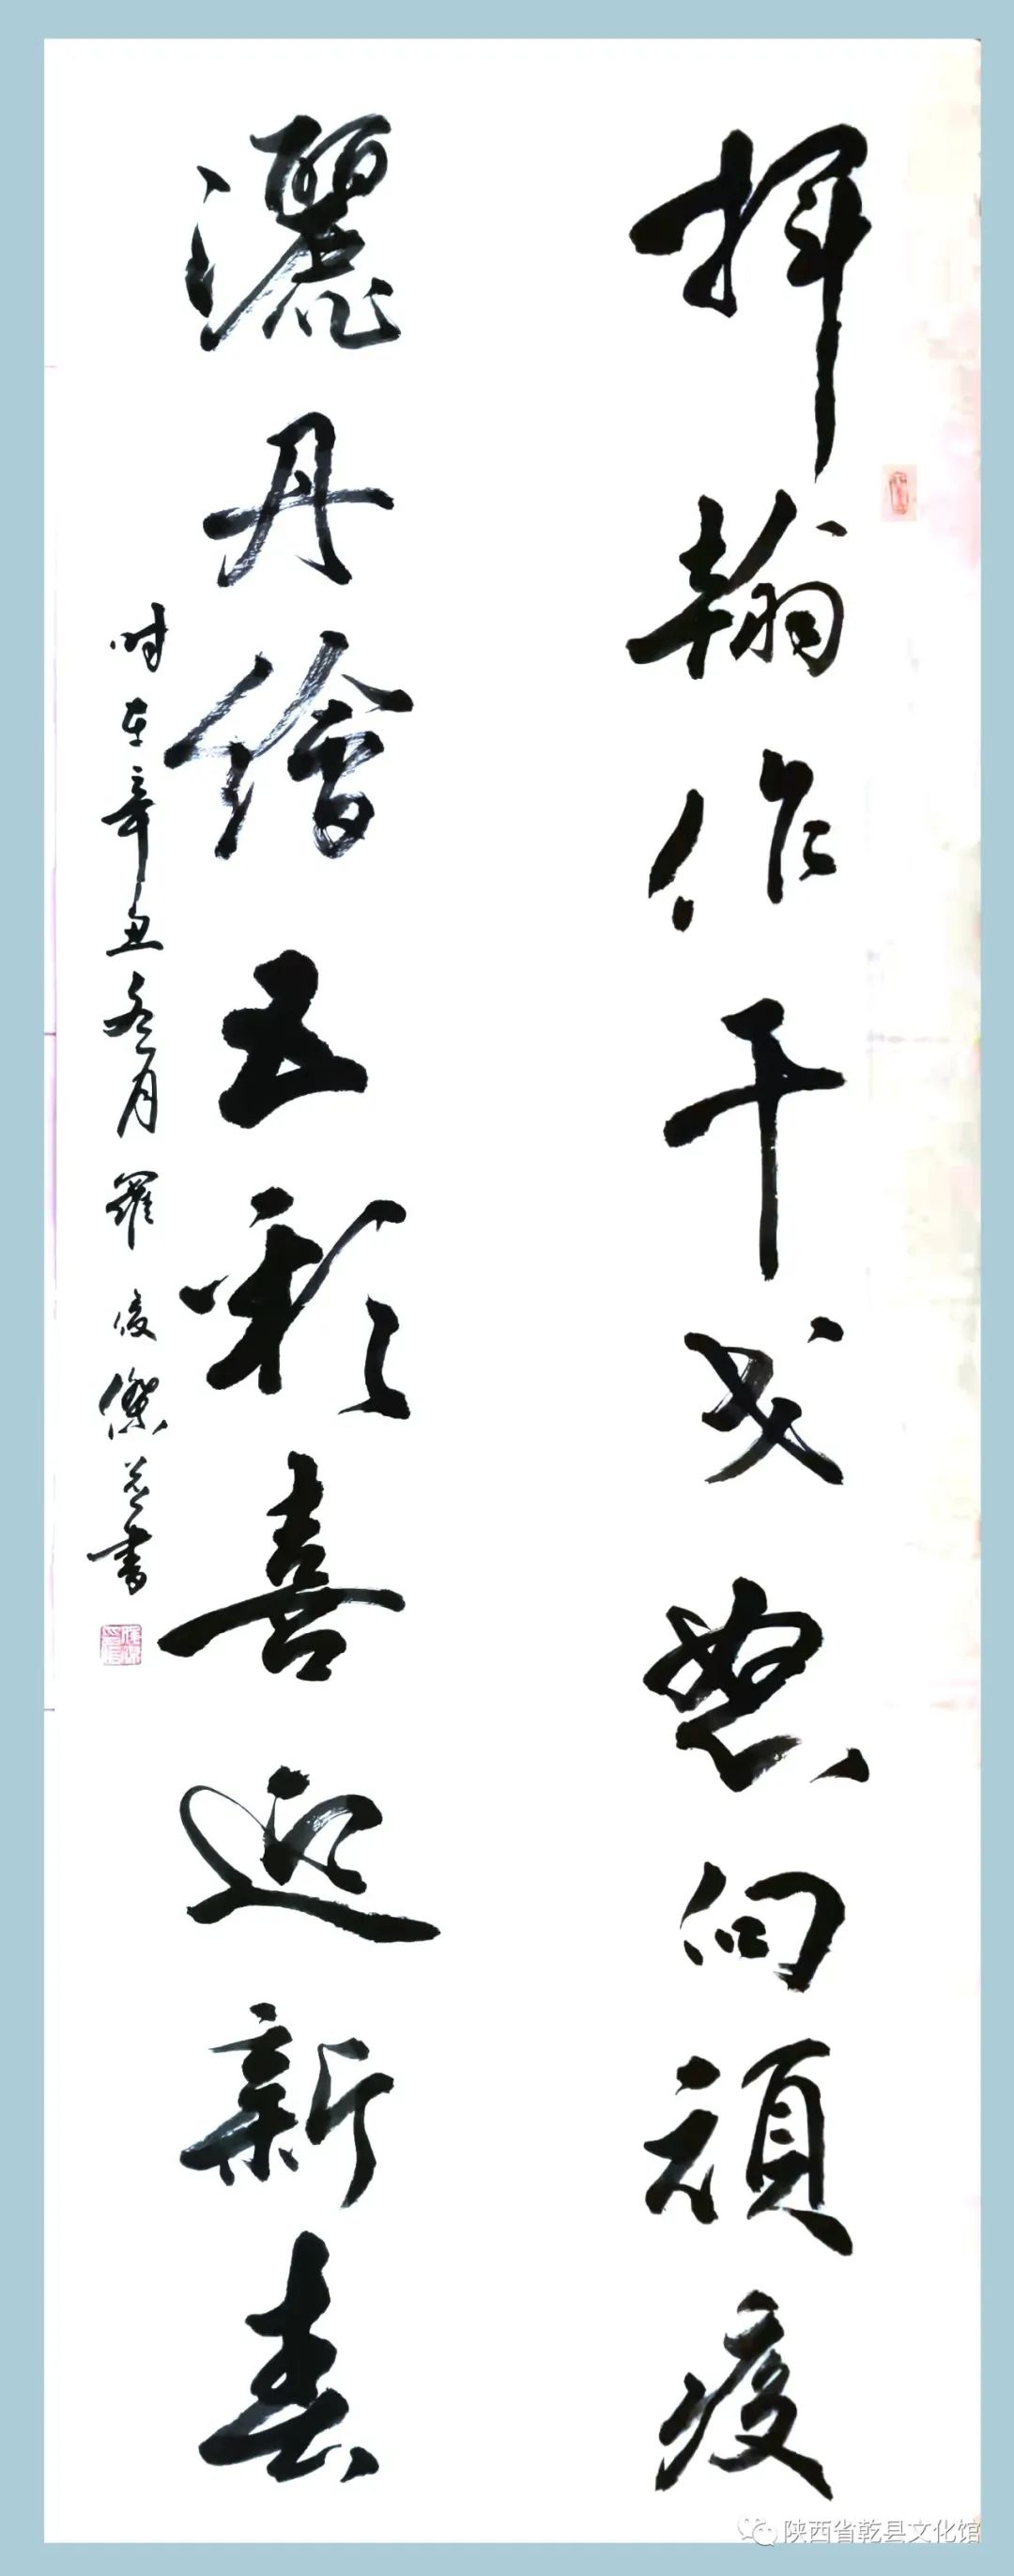 揮翰作干戈怒向頑疫
灑丹繪五彩喜迎新春
时在辛丑冬月羅俊傑並書
陕西省乾县文化馆